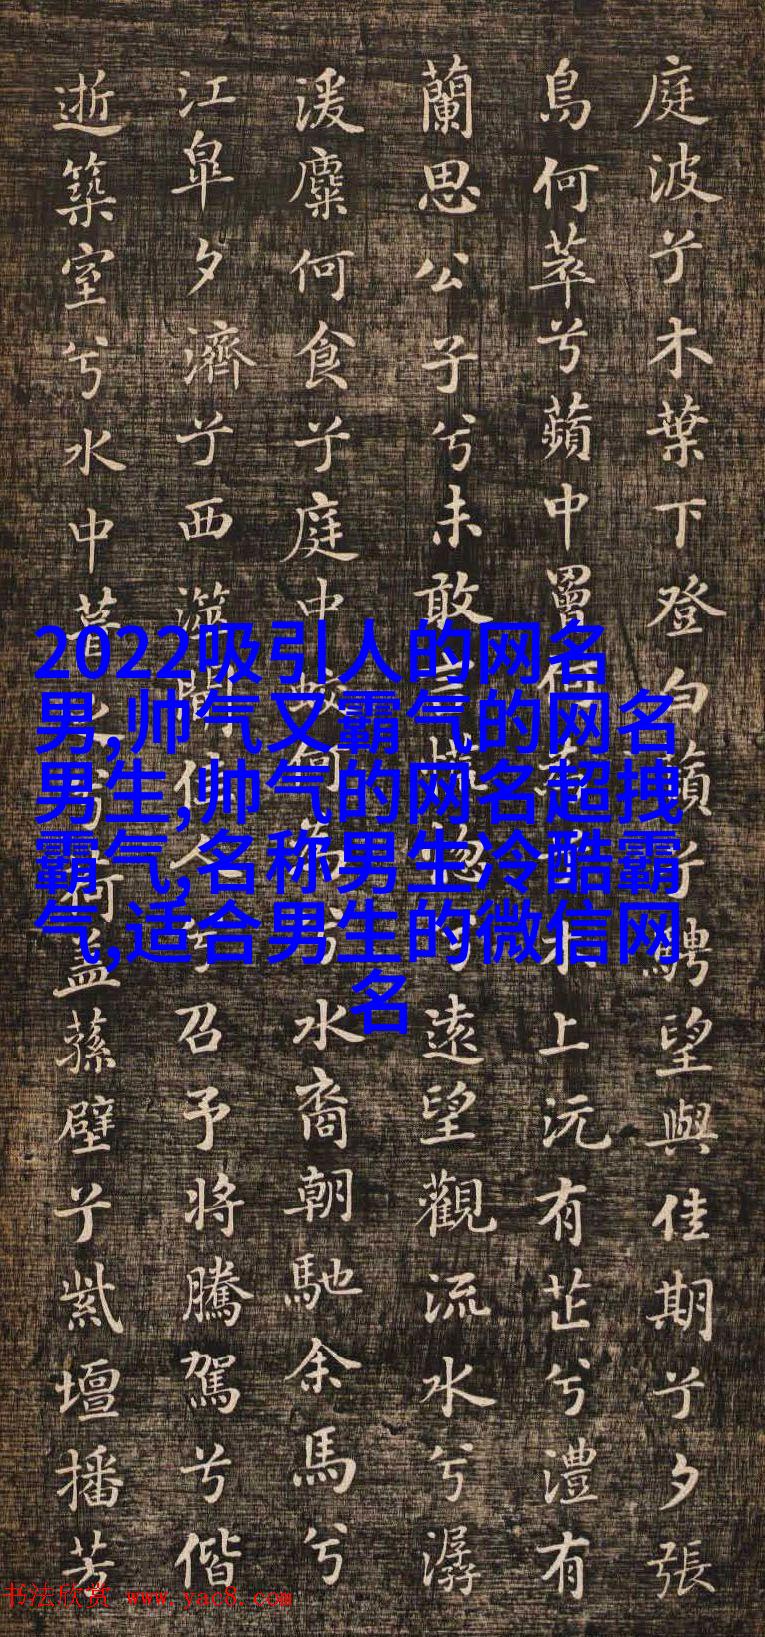 庭波兮木葉下登白蘋兮騁望與佳期兮夕張
鳥何萃兮蘋中罾何為兮木上沅有芷兮澧有
蘭思公子兮未敢言慌惚兮遠望觀流水兮潺
湲麋何食兮庭中蛟何為兮水裔朝馳余馬兮
江皐夕濟兮西澨聞佳人兮召予將騰駕兮偕
逝築室兮水中葺之兮荷盖蓀壁兮紫壇播芳
2022吸引人的网名
男,帅气又霸气的网名
男生,帅气的网名超拽
霸气,名称男生冷酷霸
气,适合男生的微信网
名
书法欣赏 www.yac8.com